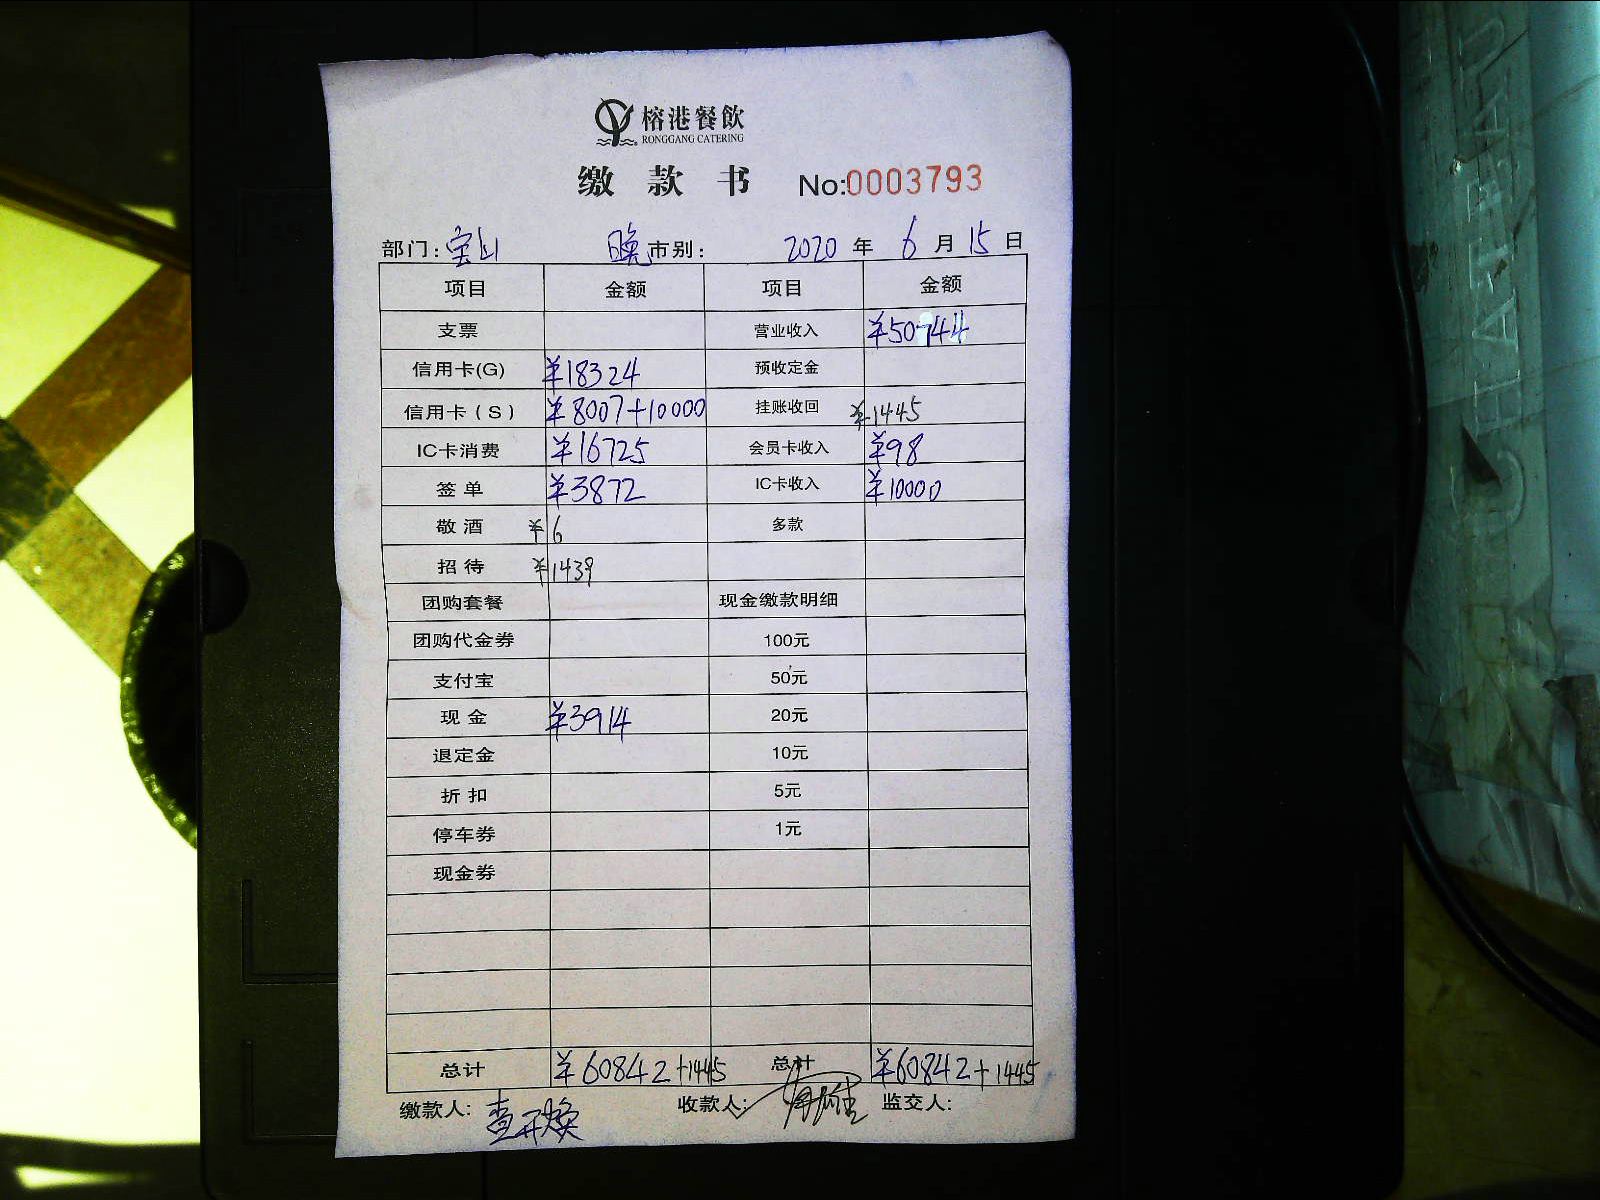 榕港餐飲
RONGGANG CATERING
缴款书 No:0003793
部门:宝山 晚市别: 2020年6月15日
项目 金额 项目 金额
支票 营业收入 ¥50744
信用卡(G) ¥18324 预收定金
信用卡(S) ¥8007+10000 挂账收回 ¥1445
IC卡消费 ¥16725 会员卡收入 ¥98
签单 ¥3872 IC卡收入 ¥10000
敬酒 ¥6 多款
招待 ¥1439
团购套餐 现金缴款明细
团购代金券 100元
支付宝 50元
现金 ¥3914 20元
退定金 10元
折扣 5元
停车券 1元
现金券
总计 ¥60842+1445 总计 ¥60842+1445
缴款人: 收款人: 监交人: